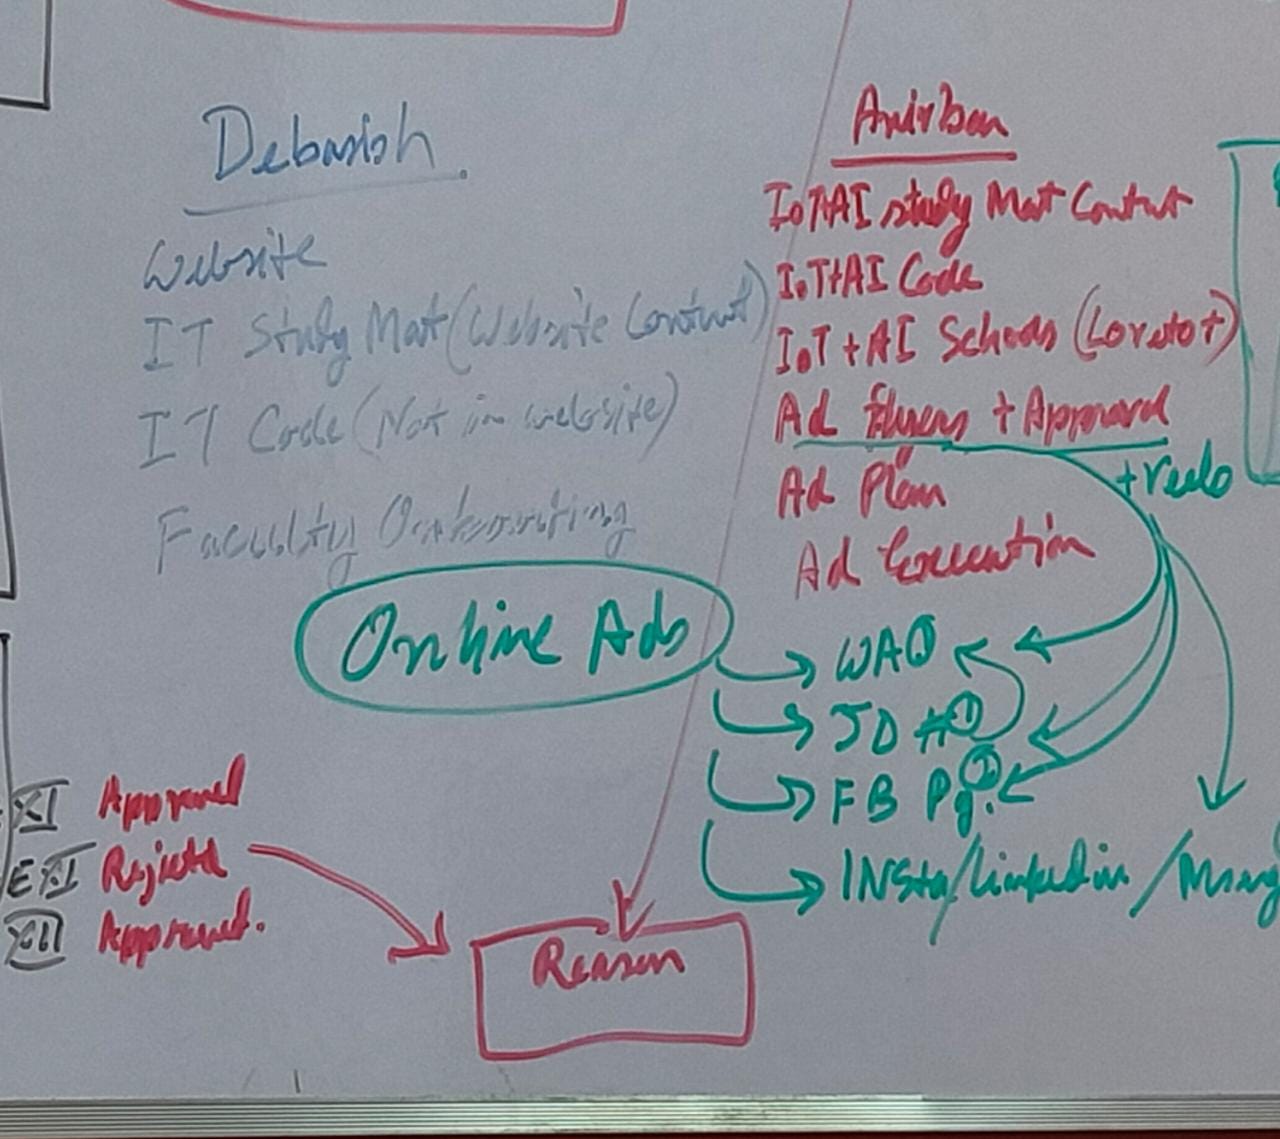 Debasish.
Website
IT Study Mat (Website Content)
IT Code (Not in website)
Faculty
Anirban
IoT+AI study Mat Content
IoT+AI Code
IoT + AI Schools (Loreto+)
Ad flyers + Approval
+ redo
Ad Plan
Ad Execution
Online Ads
WA
JD # ①
FB Pg. ②
INSta/Linkedin /
XI Approved
EXI Rejected
XII Approved.
Reason